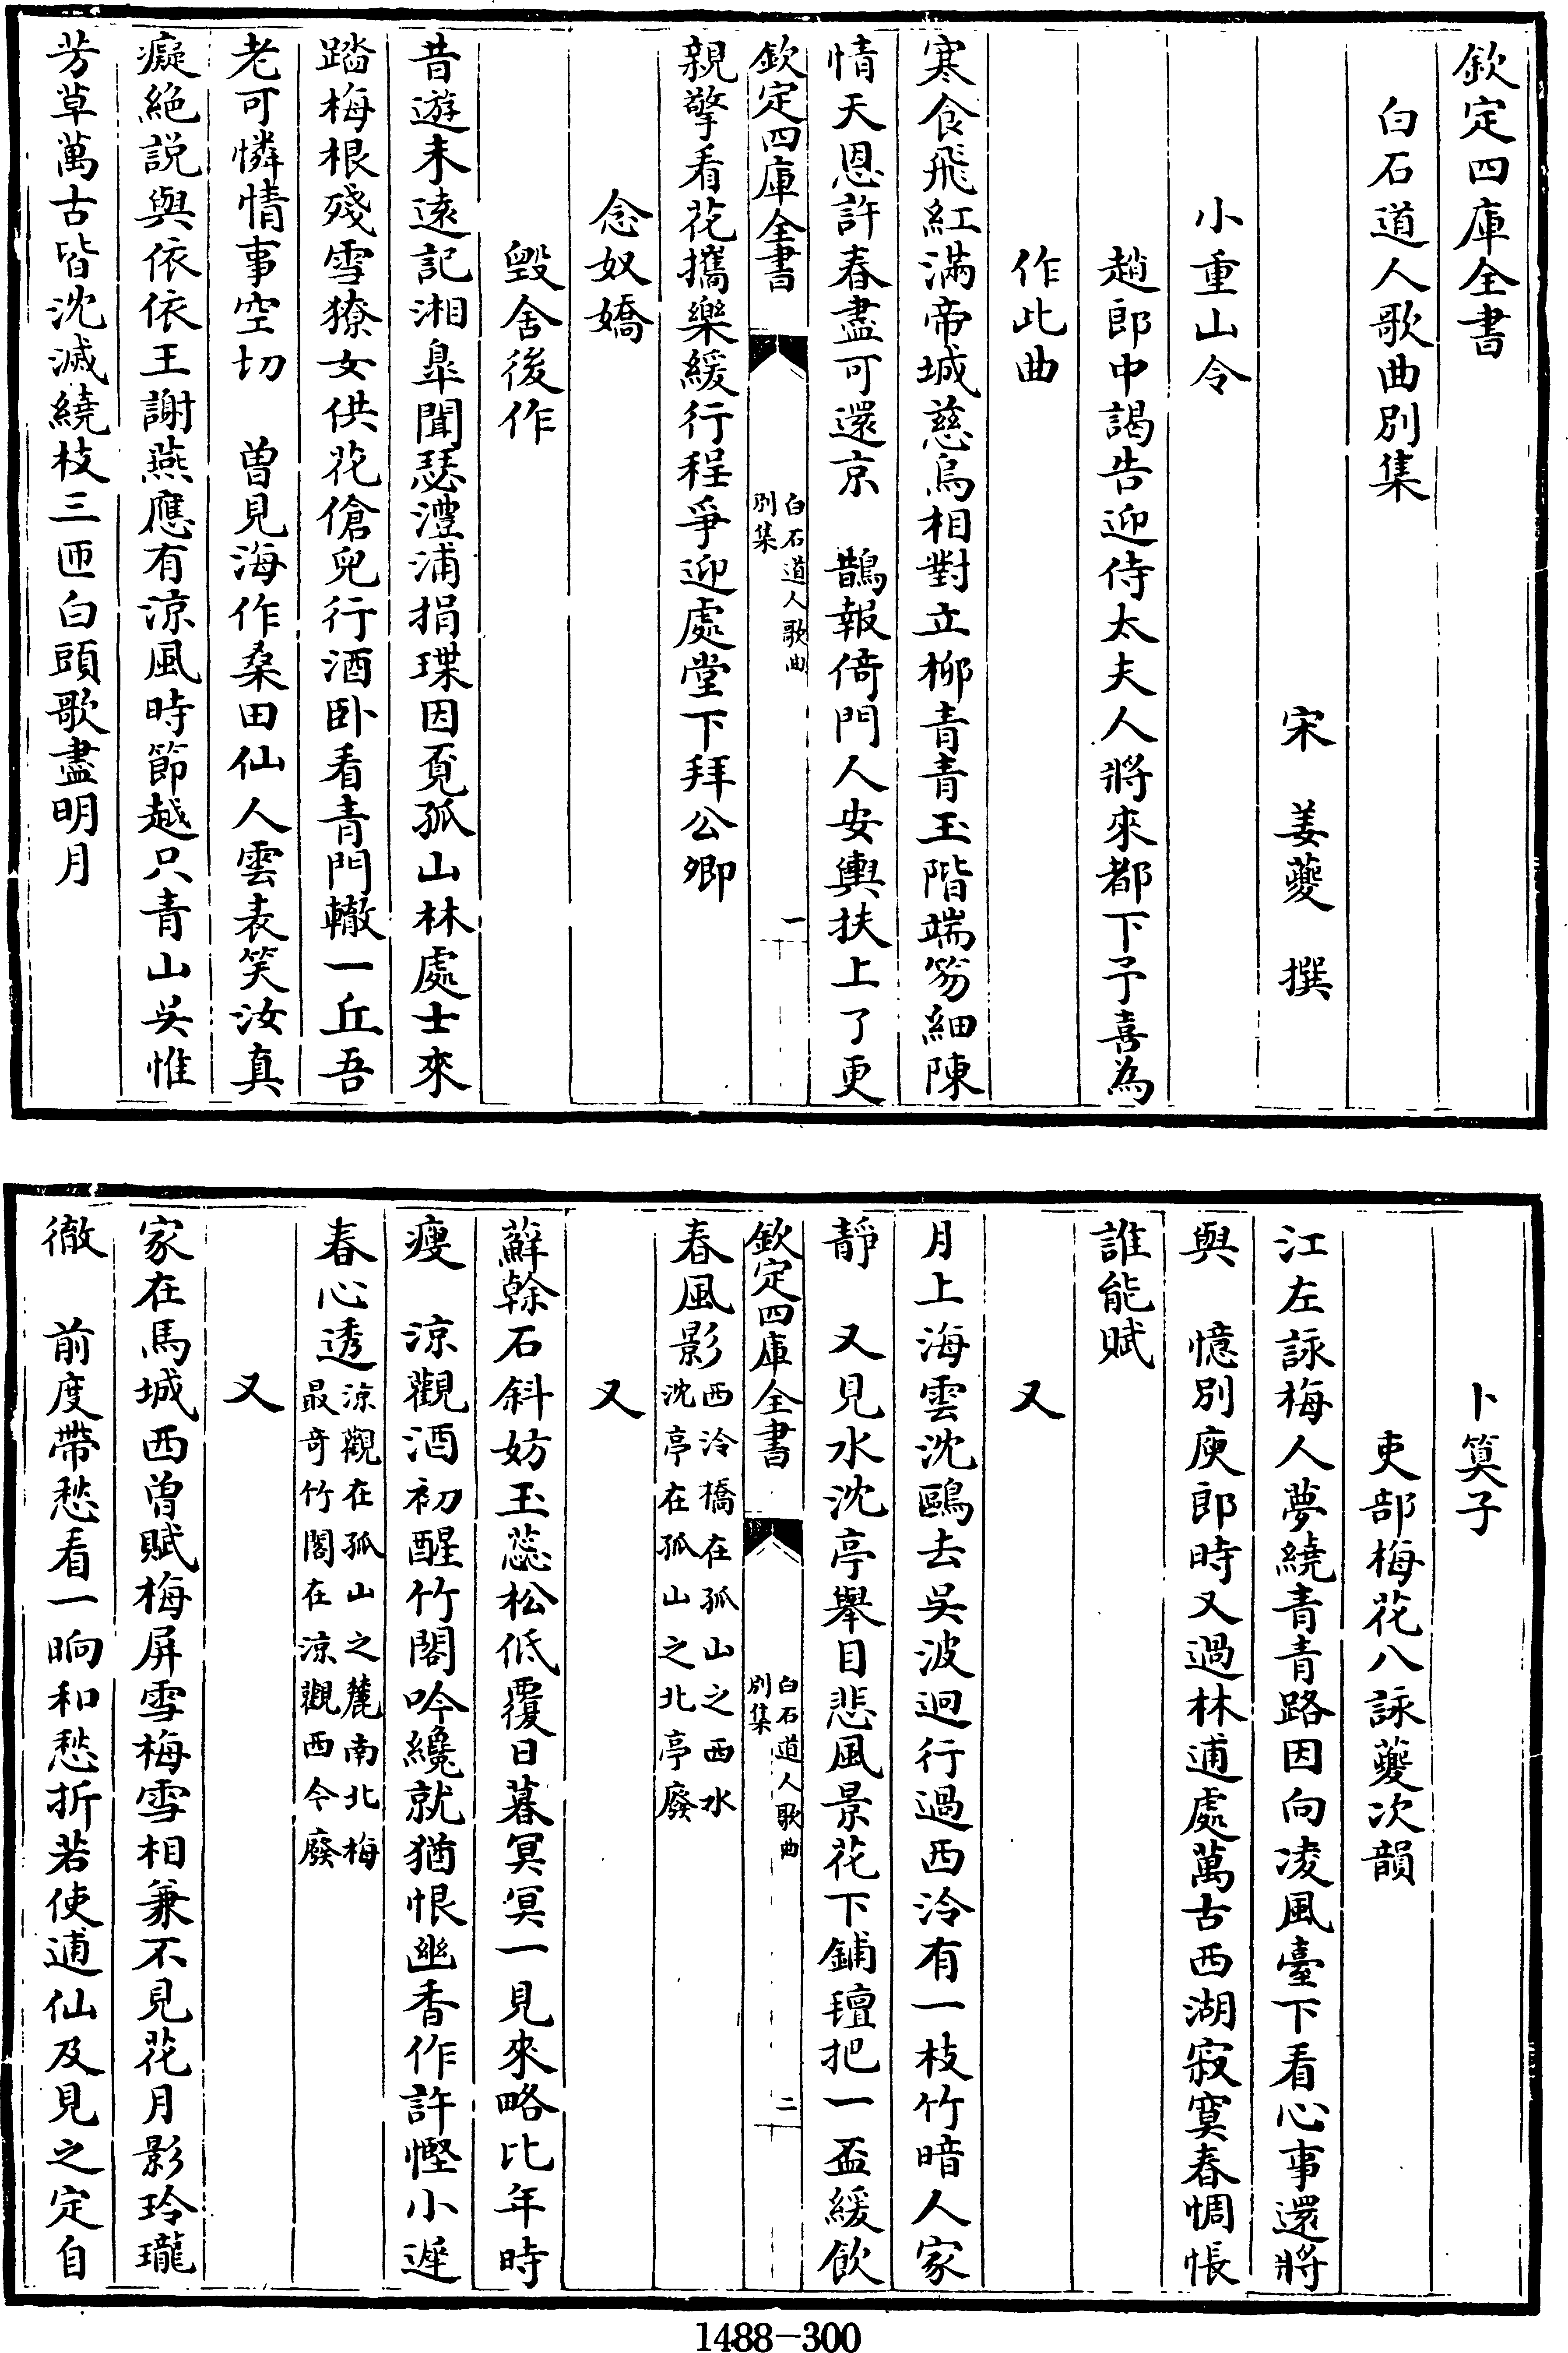 欽定四庫全書
白石道人歌曲別集
宋　姜夔　撰
小重山令
趙郎中謁告迎侍太夫人將來都下予喜為
作此曲
寒食飛紅滿帝城慈烏相對立柳青青玉階端笏細陳
情天恩許春盡可還京　鵲報倚門人安輿扶上了更
欽定四庫全書
白石道人歌曲
別集
一
親擎看花攜樂緩行程爭迎處堂下拜公卿
念奴嬌
毀舍後作
昔遊未遠記湘臯聞瑟澧浦捐㻡因覔孤山林處士來
踏梅根殘雪獠女供花傖兒行酒卧看青門轍一丘吾
老可憐情事空切　曾見海作桑田仙人雲表笑汝真
癡絶説與依依王謝燕應有涼風時節越只青山吳惟
芳草萬古皆沈滅繞枝三匝白頭歌盡明月
卜算子
吏部梅花八詠夔次韻
江左詠梅人夢繞青青路因向凌風臺下看心事還將
與　憶別庾郎時又過林逋處萬古西湖寂寞春惆悵
誰能賦
又
月上海雲沈鷗去吳波迥行過西泠有一枝竹暗人家
靜　又見水沈亭舉目悲風景花下鋪氊把一盃緩飲
欽定四庫全書
白石道人歌曲
別集
二
春風影西泠橋在孤山之西水
沈亭在孤山之北亭廢
又
蘚榦石斜妨玉蕊松低覆日暮冥冥一見來略比年時
瘦　涼觀酒初醒竹閣吟纔就猶恨幽香作許慳小遲
春心透涼觀在孤山之麓南北梅
最奇竹閣在涼觀西今廢
又
家在馬城西曾賦梅屏雪梅雪相兼不見花月影玲瓏
徹　前度帶愁看一晌和愁折若使逋仙及見之定自
1488-300